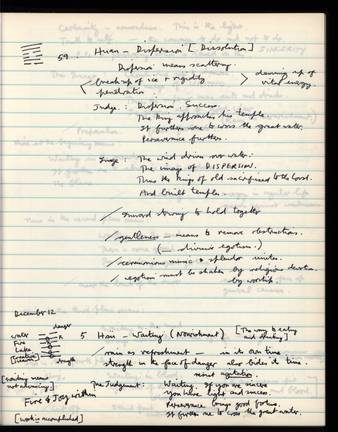 59. Huan - Dispersion [Dissolution]
Dispersion means scattering.
break-up of ice & rigidity
penetration
damming up of
vital energy
Judge: Dispersion. Success.
The King approaches his temple
It furthers one to cross the great water.
Perseverance furthers.
Image: The wind drives over water:
The image of DISPERSION.
Thus the kings of old sacrificed to the Lord
And built temples.
/ inward strong to hold together
/ gentleness means to remove obstructions.
(_ divisive egotism.)
/ ceremonious music & splendor unites.
/ egotism must be shaken by religious devotion
by worship.
December 12
danger
water
Fire
Lake
[Creative]
strength
5 - Waiting (Nourishment) [The way to eating
and drinking]
/ rain as refreshment - in its own time
strength in the face of danger also bides its time.
mind agitation.
[waiting means
not advancing]
The Judgment: Waiting. If you are sincere
you have light and success.
Fire & Joy within
Perseverance brings good fortune
It furthers one to cross the great water.